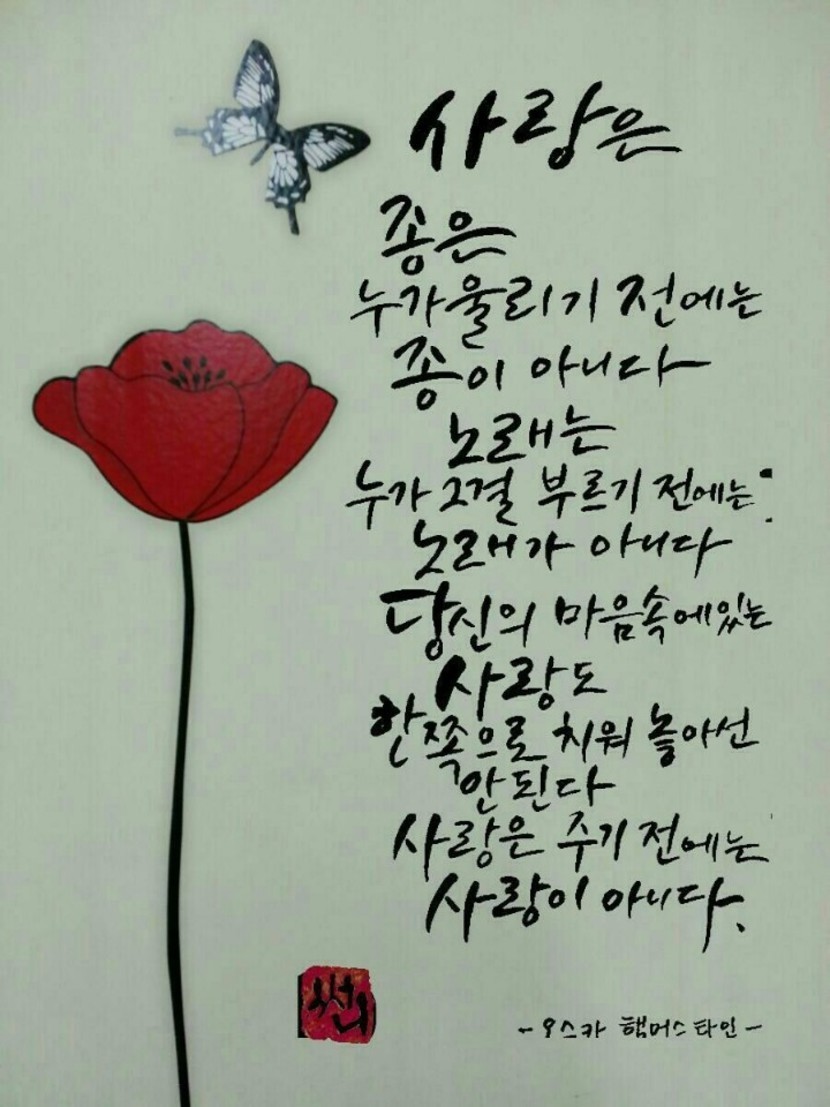 사랑은
종은
누가 울리기 전에는
종이 아니다
노래는
누가 그걸 부르기 전에는
노래가 아니다
당신의 마음속에 있는
사랑도
한쪽으로 치워 놓아선
안된다
사랑은 주기 전에는
사랑이 아니다.
썬니
- 오스카 햄머스타인 -